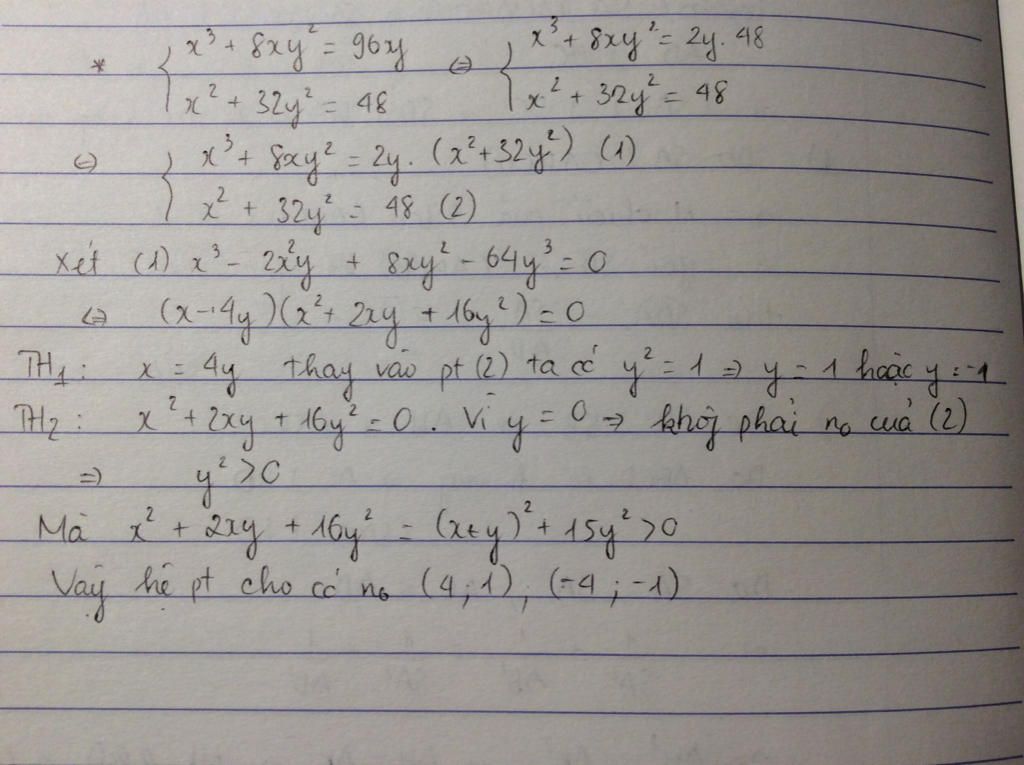 * { x³ + 8xy² = 96xy ⇔ { x³ + 8xy² = 2y. 48
x² + 32y² = 48 x² + 32y² = 48
⇔ { x³ + 8xy² = 2y. (x² + 32y²) (1)
x² + 32y² = 48 (2)
Xét (1) x³ - 2x²y + 8xy² - 64y³ = 0
⇔ (x - 4y)(x² + 2xy + 16y²) = 0
TH₁: x = 4y thay vào pt (2) ta có y² = 1 ⇒ y = 1 hoặc y = -1
TH₂: x² + 2xy + 16y² = 0. Vì y = 0 ⇒ không phải no của (2)
⇒ y² > 0
Mà x² + 2xy + 16y² = (x+y)² + 15y² > 0
Vậy hệ pt cho có no (4; 1), (-4; -1)